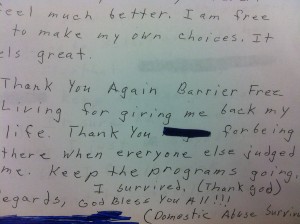 feel much better. I am free
to make my own choices. It
els great.
Thank You Again Barrier Free
Living for giving me back my
life. Thank You for being
there when everyone else judged
me. Keep the programs going.
I survived. (Thank god)
egards, God Bless You All!!!
(Domestic Abuse Surviv